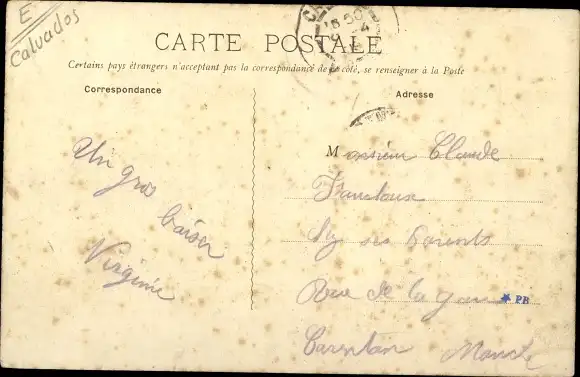 E
Calvados
CARTE POSTALE
Certains pays étrangers n'acceptant pas la correspondance de ce côté, se renseigner à la Poste
Correspondance
Adresse
Un gros
baiser
Virginie
Monsieur Claude
ses Parents
Rue de la
PB
Carentan Manche